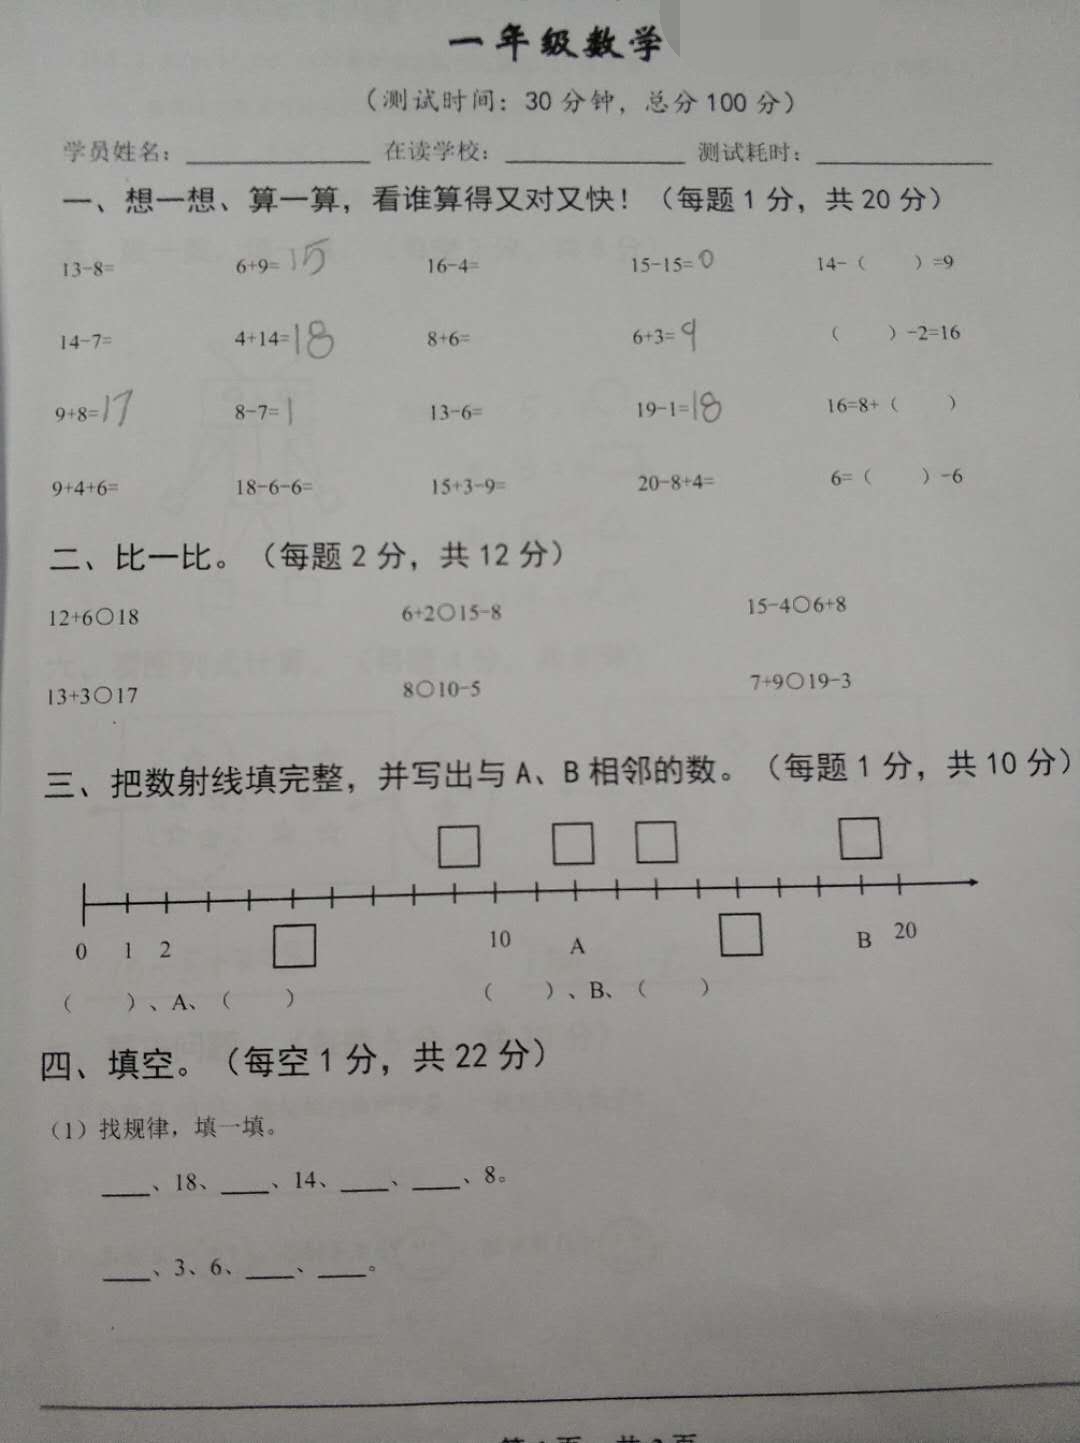 一年级数学
（测试时间：30分钟，总分100分）
学员姓名：____ 在读学校：____ 测试耗时：____
一、想一想、算一算，看谁算得又对又快！（每题1分，共20分）
13-8= 6+9=15 16-4= 15-15=0 14-（ ）=9
14-7= 4+14=18 8+6= 6+3=9 （ ）-2=16
9+8=17 8-7=1 13-6= 19-1=18 16=8+（ ）
9+4+6= 18-6-6= 15+3-9= 20-8+4= 6=（ ）-6
二、比一比。（每题2分，共12分）
12+6○18 6+2○15-8 15-4○6+8
13+3○17 8○10-5 7+9○19-3
三、把数射线填完整，并写出与A、B相邻的数。（每题1分，共10分）
0 1 2 10 A B 20
（ ）、A、（ ） （ ）、B、（ ）
四、填空。（每空1分，共22分）
（1）找规律，填一填。
____、18、____、14、____、____、8。
____、3、6、____、____。